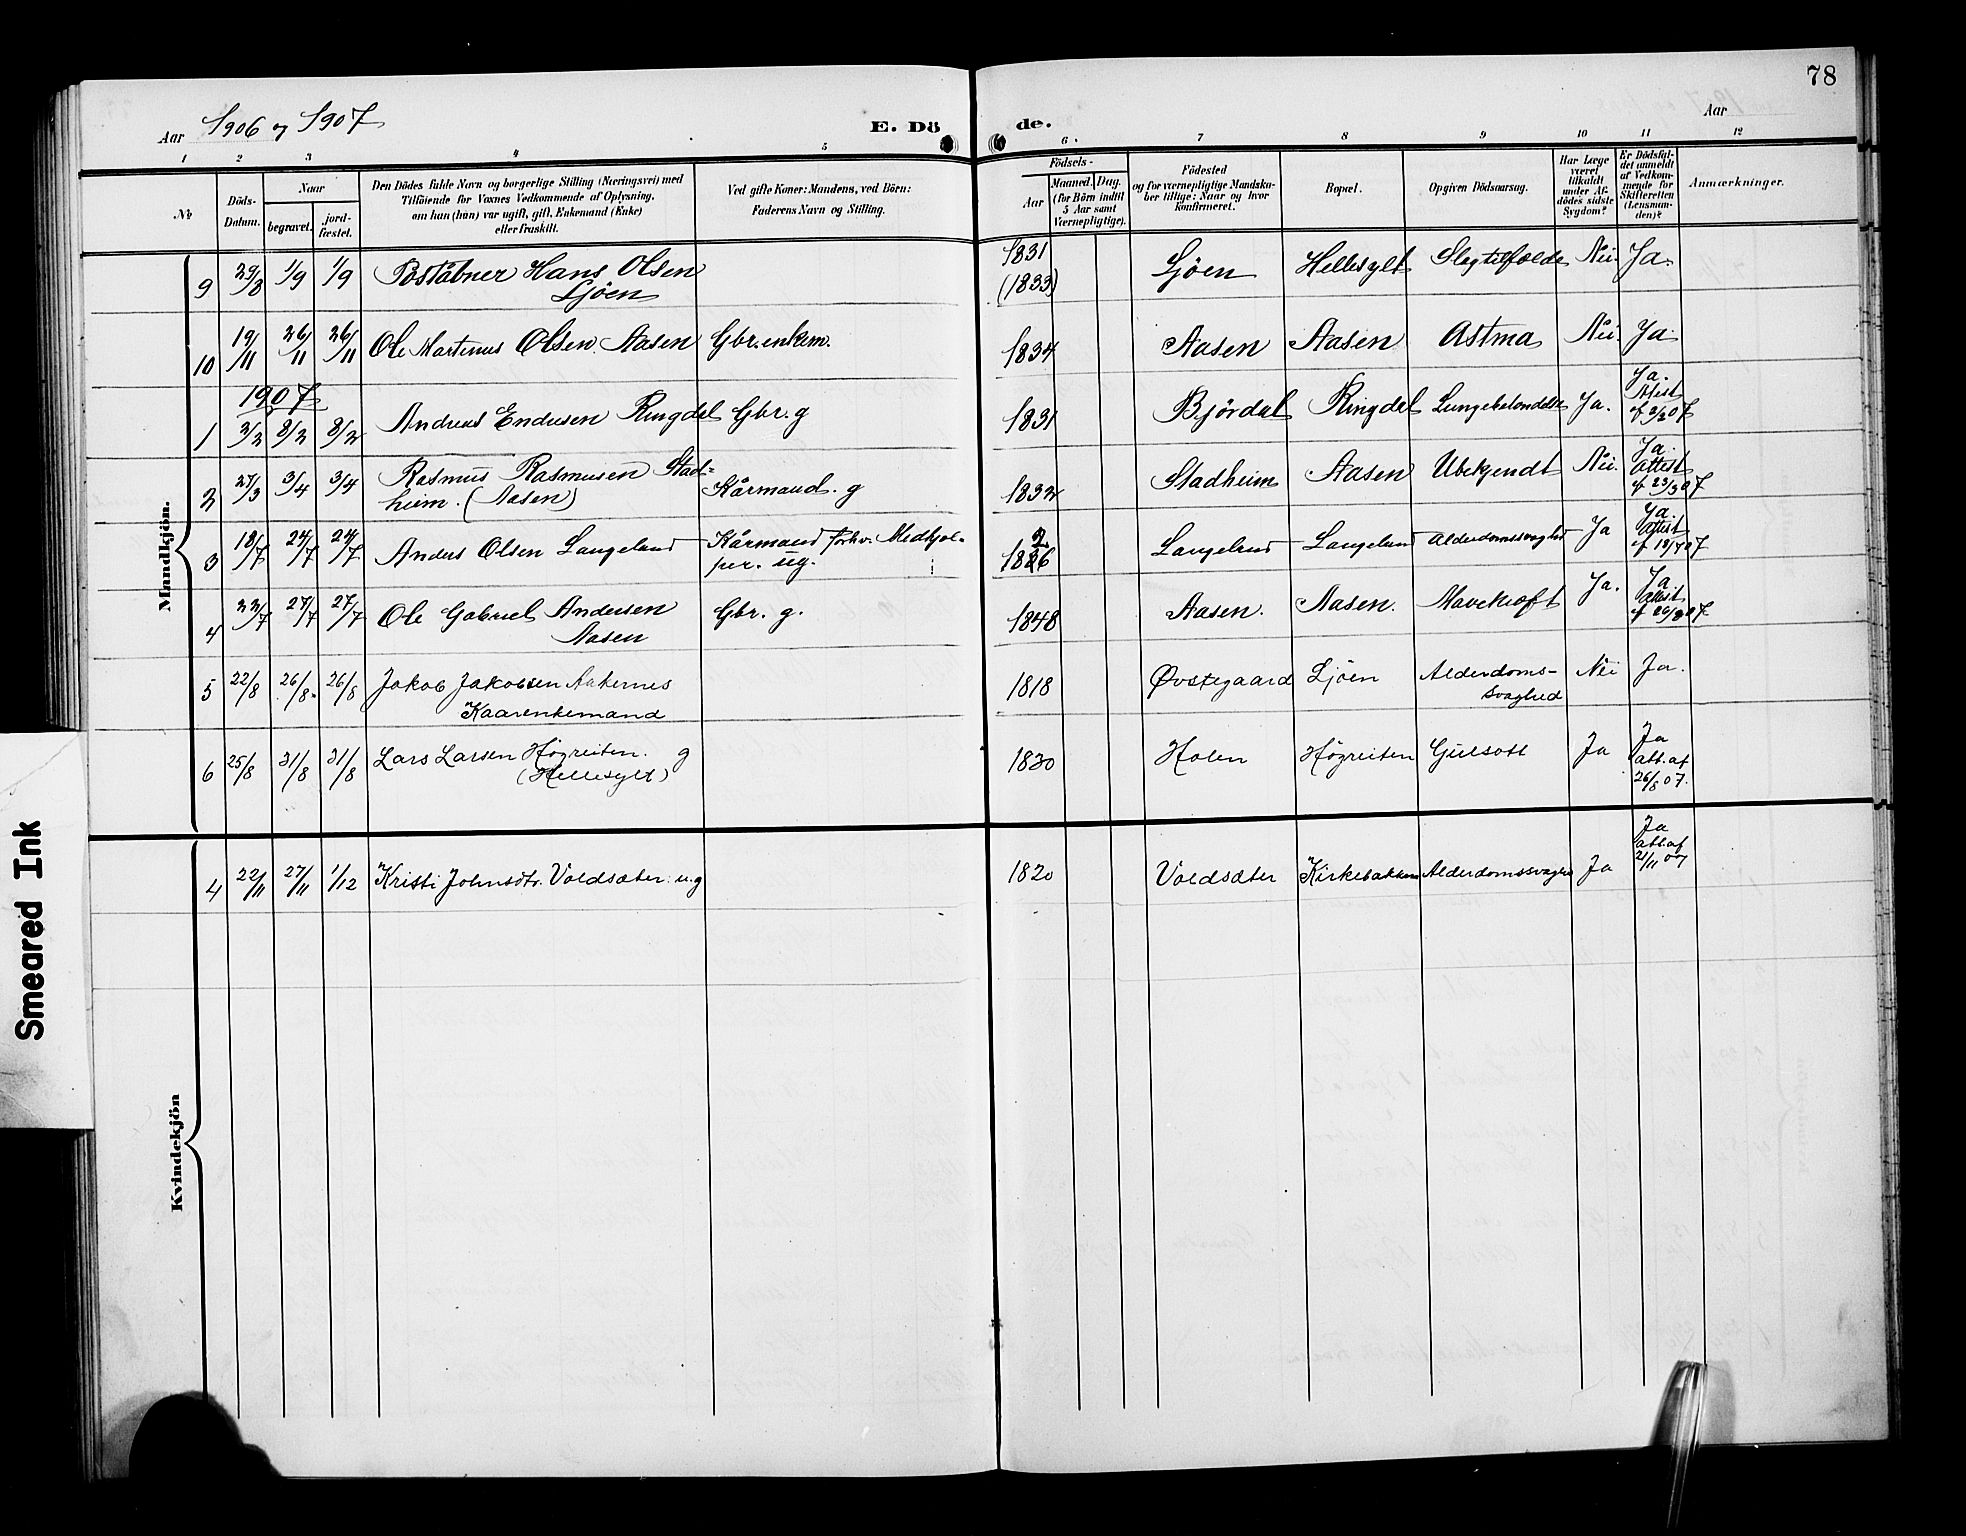 78
Aar 1906 og 1907
E. Dö de.
Aar
1 2 3 4 5 6. 7 8 9 10 11 12
No
Döds-
Datum.
Naar
begravet.
jord-
fæstet.
Den Dödes fulde Navn og borgerlige Stilling (Næringsvei) med
Tilföiende for Voxnes Vedkommende af Oplysning,
om han (hun) var ugift, gift, Enkemand (Enke)
eller fraskilt.
Ved gifte Koner: Mandens, ved Börn:
Faderens Navn og Stilling.
Födsels-
Aar
Maaned. Dag.
(for Börn indtil
5 Aar samt
Værnepligtige).
Födested
og for værnepligtige Mandska-
ber tillige: Naar og hvor
konfirmeret.
Bopæl.
Opgiven Dödsaarsag.
Har Læge
været
tilkaldt
under Af-
dödes sidste
Sygdom?
Er Dödsfal-
det anmeldt
af Vedkom-
mende for
Skifteretten
(Lensman-
den)?
Anmærkninger.
Mandkjön.
9 29/8 1/9 1/9 Poståbner Hans Olsen
Ljöen
1831
(1833)
Ljöen Hellesylt Slagtilfælde Nei Ja.
10 19/11 26/11 26/11 Ole Martinus Olsen Aasen Gbr. enkem. 1834 Aasen Aasen Astma Nei. Ja
1907
1 3/2 8/2 8/2 Andreas Endresen Ringdal Gbr. g 1831 Björdal Ringdal Lungebetændelse Ja. Ja.
Attest
af 3/2 07
2 27/3 3/4 3/4 Rasmus Rasmusen Stad-
heim. (Aasen)
Kårmand. g 1832 Stadheim Aasen Ubekjendt Nei. Ja
attest
af 23/3 07
3 18/7 24/7 24/7 Anders Olsen Langeland Kårmand forhv. Medhjæl-
per. ug.
1826 Langeland Langeland Alderdomssvaghed Ja Ja.
Attest
af 19/7 07
4 23/7 27/7 27/7 Ole Gabriel Andersen
Aasen
Gbr. g. 1848 Aasen. Aasen. Mavekræft Ja. Ja
attest
5 22/8 26/8. 26/8 Jakob Jakobsen Aakernes
Kaarenkemand
1818 Øvstegaard Ljöen Alderdoms-
svaghed
Nei Ja.
6 25/8 31/8 31/8 Lars Larsen Högreiten. g
(Hellesylt)
1830 Holen Högreiten Gulsott Ja Ja
att. af
26/8 07.
Kvindekjön
4 22/11 27/11 1/12 Kristi Johnsdtr. Voldsæter. u.g 1820 Voldsæter Kirkebakken Alderdomssvaghed Ja Ja
att. af
21/11 07
Smeared Ink